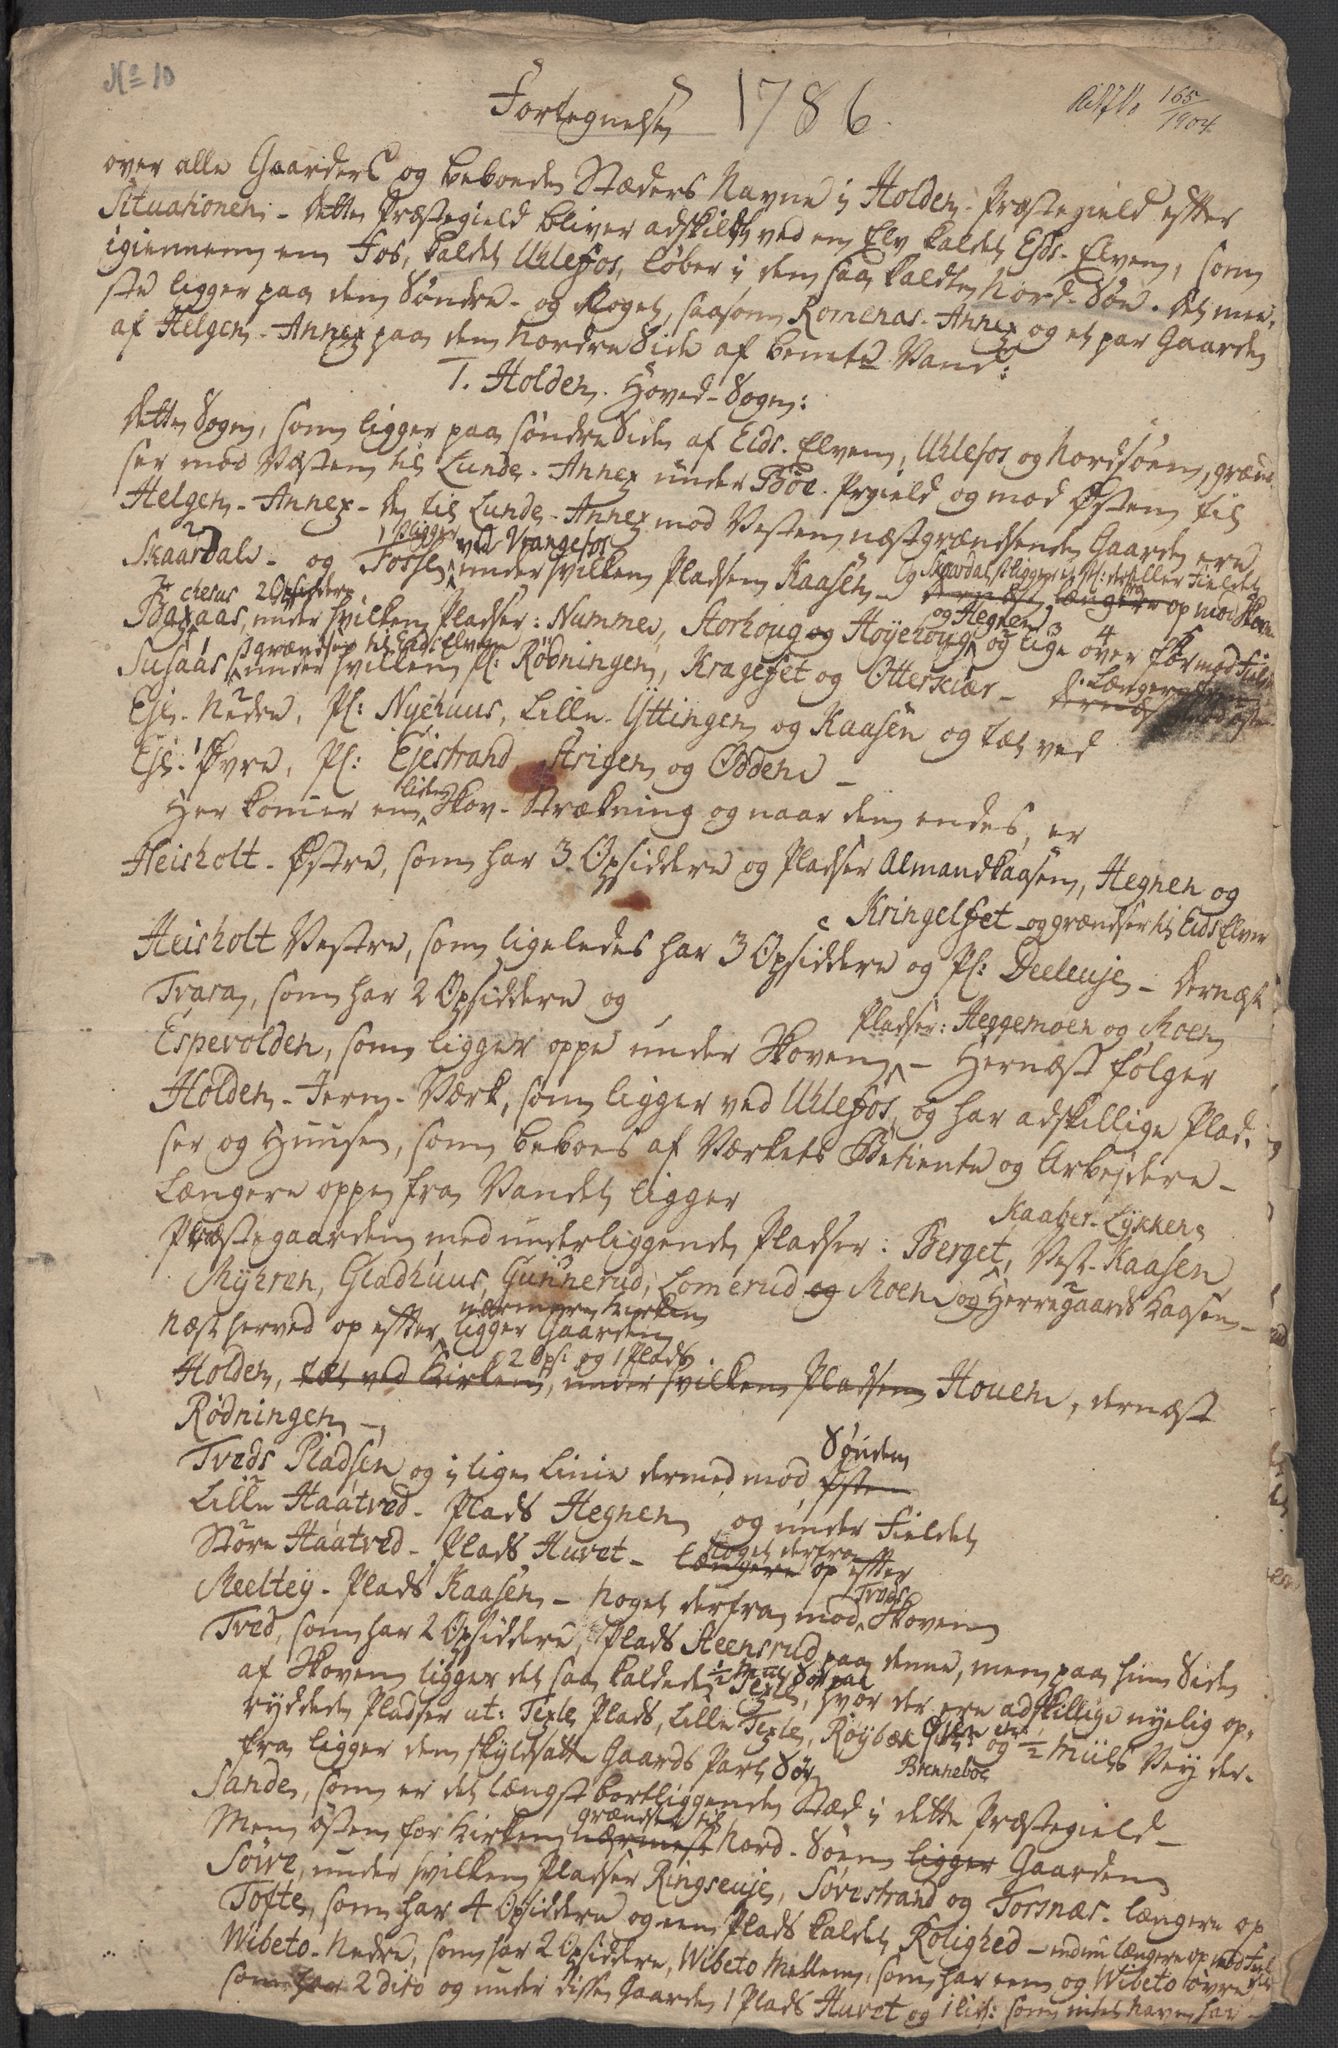 No 10
Fortegnelse 1786.
165/1904
over alle Gaarders og beboede Stæders Navne i Holden-Præstegield efter
Situationen - Dette Præstegield bliver adskildt ved en Elv kaldet Eids-Elven, som
igiennem en Fos, kaldet Uhlefos, løber i den saa kaldte Nord-Søe. Det me-
ste ligger paa den Søndre- og Noget, saasom Romenas-Annex og et par Gaarde
af Helgen-Annex paa den Nordre Side af bemte Vand:
1. Holden-Hoved-Sogn:
Dette Sogn, som ligger paa søndre Siden af Eids-Elven, Uhlefos og Nordsøen, grænd-
ser mod Vesten til Lunde-Annex under Bøe-Prgield og mod Østen til
Helgen-Annex - De til Lunde-Annex mod Vesten næstgrændsende Gaarde ere
Skaardal - og Fosse ligger ved Vrangefos under hvilken Pladsen Kaasen -
Baxaas, 2 Opsiddere under hvilken Pladser: Numme, Storhoug og Høyehoug og Hegnen og lige over for mod
Susaas grændser til Eids Elven under hvilken Pl: Rødningen, Kragefet og Otterkiær -
Eje-Nedre, Pl: Nyehuus, Lille-Yttingen og Kaasen og tæt ved
Eje-Øvre, Pl: Ejestrand, Strigen og Oddene -
Her komer en liden Skov-Strækning og naar den endes, er
Heisholt-Østre, som har 3 Opsiddere og Pladser Almandkaasen, Hegnen og
Kringelfet og grændser til Eids Elven
Heisholt Vestre, som ligeledes har 3 Opsiddere og Pl: Deeleuje - Dernæst
Tvara, som har 2 Opsiddere og
Pladser: Heggemoen og Moen
Espevolden, som ligger oppe under Skoven - Hernæst følger
Holden-Jern-Værk, som ligger ved Uhlefos, og har adskillige Plad-
ser og Huuse, som beboes af Værkets Betiente og Arbejdere -
Længere oppe fra Vandet ligger
Kaaber-Lykken
Præstegaarden med underliggende Pladser: Berget, Vest-Kaasen
Myhren, Gladhuus, Gunnerud, Lomerud og Moen og Herregaards Kaasen -
Næst herved op efter nærmere Kirken ligger Gaarden
Holden, tæt ved Kirken, 2 Ops: og 1 Plads under hvilken Pladsen Houen, dernæst
Rødningen -
Tveds Pladsen og i lige Linie dermed mod Østen Sønden
Lille Haatved - Plads Hegnen og under Fieldet
Store Haatved - Plads Huret - længere Noget derfra op efter
Meeltey - Plads Kaasen - Noget derfra mod Tveds Skoven
Tved, som har 2 Opsiddere, Plads Steensrud paa denne, men paa hin Side
af Skoven ligger det saa kaldede Texle, hvor der ere adskillige nyelig op-
ryddede Pladser ut: Texle Plads, Lille Texle, Røybæk og ½ Miils Vey der-
Brenneboe
fra ligger den skyldsatte Gaards Part Sør
Sande, som er det længst bortliggende Stæd i dette Præstegield -
Men østen for Kirken nærmest grændser til Nord-Søen ligger Gaarden
Søve, under hvilken Pladser Ringseuje, Søvestrand og Torsnæs - længere op
Tofte, som har 4 Opsiddere og een Plads kaldet Rolighed - endnu længere op mod
Wibeto-Nedre, som har 2 Opsiddere, Wibeto Mellem, som har een og Wibeto øvre
som har 2 dito og under disse Gaarde 1 Plads Huret og 1